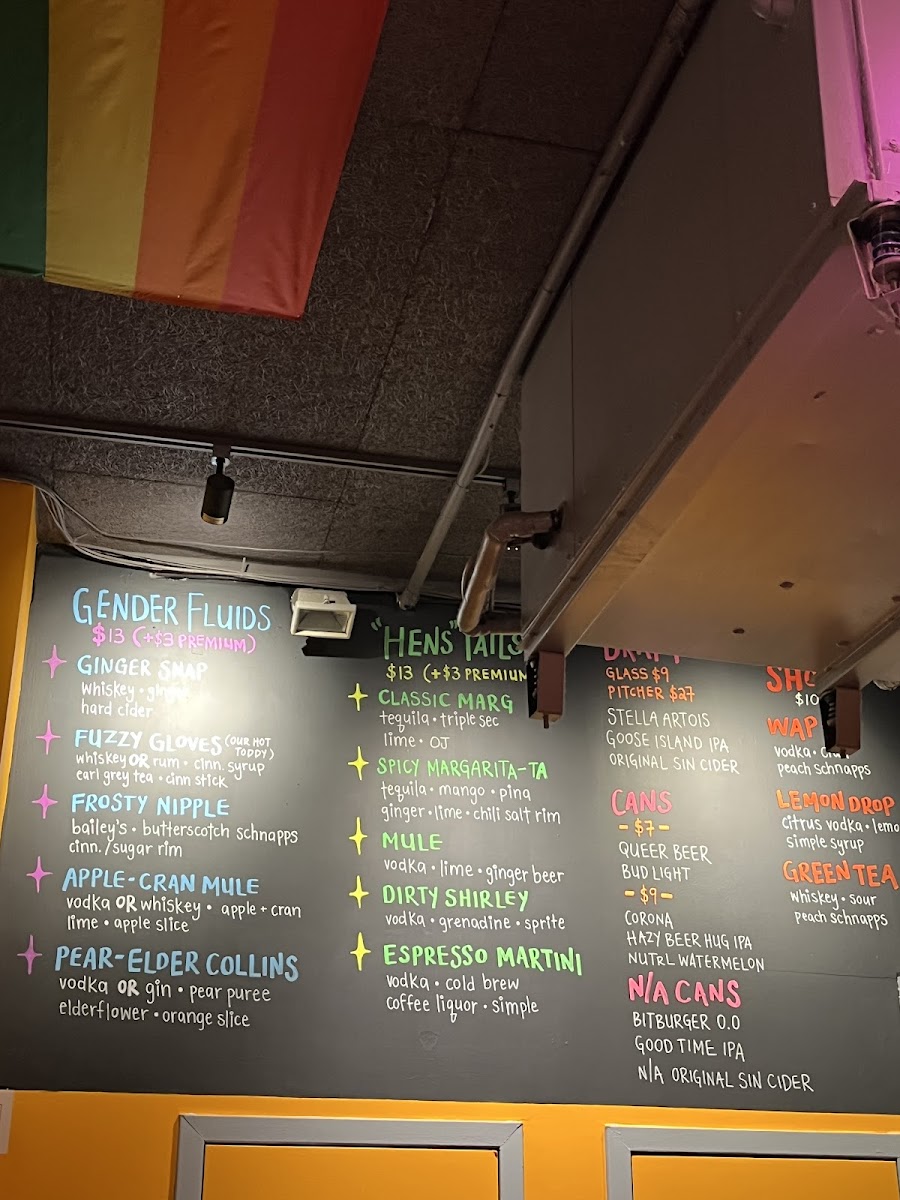 GENDER FLUIDS
$13 (+$3 PREMIUM)
GINGER SNAP
whiskey • ginger
hard cider
FUZZY GLOVES (OUR HOT TODDY)
whiskey OR rum • cinn. syrup
earl grey tea • cinn stick
FROSTY NIPPLE
bailey's • butterscotch schnapps
cinn./sugar rim
APPLE-CRAN MULE
vodka OR whiskey • apple + cran
lime • apple slice
PEAR-ELDER COLLINS
vodka OR gin • pear puree
elderflower • orange slice
"HENS" TAILS
$13 (+$3 PREMIUM
CLASSIC MARG
tequila • triple sec
lime • OJ
SPICY MARGARITA-TA
tequila • mango • pina
ginger • lime • chili salt rim
MULE
vodka • lime • ginger beer
DIRTY SHIRLEY
vodka • grenadine • sprite
ESPRESSO MARTINI
vodka • cold brew
coffee liquor • simple
GLASS $9
PITCHER $27
STELLA ARTOIS
GOOSE ISLAND IPA
ORIGINAL SIN CIDER
CANS
- $7 -
QUEER BEER
BUD LIGHT
- $9 -
CORONA
HAZY BEER HUG IPA
NUTRL WATERMELON
N/A CANS
BITBURGER 0.0
GOOD TIME IPA
N/A ORIGINAL SIN CIDER
$10
WAP
vodka •
peach schnapps
LEMON DROP
citrus vodka • lemo
simple syrup
GREEN TEA
whiskey • sour
peach schnapps